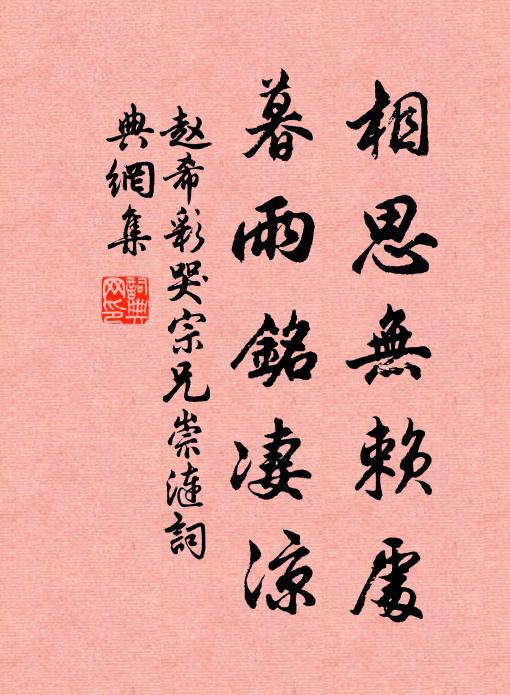 相思無賴處
暮雨銘凄涼
赵希彩哭宗兄崇漣詞
典網集
詞典网印